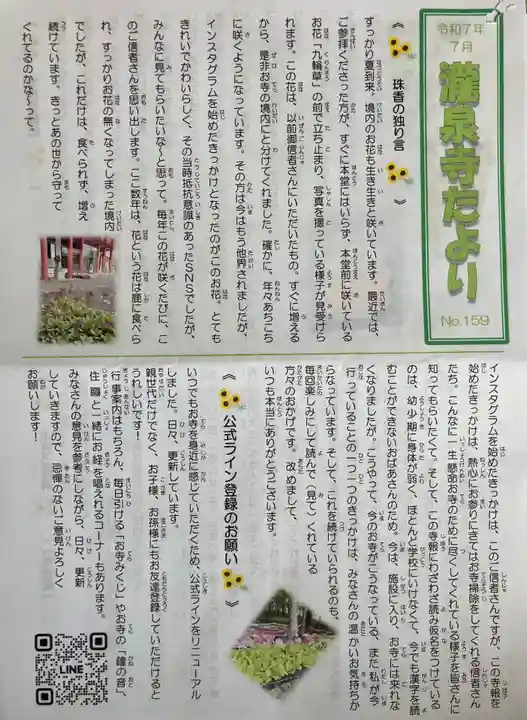 令和7年
7月
瀧泉寺だより
No.159
《 珠香の独り言 》
すっかり夏到来。境内のお花も生き生きと咲いています。最近では、
ご参拝くださった方が、すぐに本堂にはいらず、本堂前に咲いている
お花「九輪草」の前で立ち止まり、写真を撮っている様子が見受けら
れます。この花は、以前御信者さんにいただいたもの。すぐに増える
から、是非お寺の境内にと分けてくれました。確かに、年々あちこち
に咲くようになっています。その方は今はもう他界されましたが、
インスタグラムを始めたきっかけとなったのがこのお花。とても
きれいでかわいらしく、その当時抵抗意識のあったSNSでしたが、
みんなに見てもらいたいな~と思って。毎年この花が咲くたびに、こ
のご信者さんを思い出します。ここ数年は、花という花は鹿に食べら
れ、すっかりお花の無くなってしまった境内
でしたが、これだけは、食べられず、増え
続けています。きっとあの世から守って
くれてるのかな~って。
インスタグラムを始めたきっかけは、このご信者さんですが、この寺報を
始めたきっかけは、熱心にお参りにきてはお寺掃除をしてくれる信者さん
たち。こんなに一生懸命お寺のために尽くしてくれている様子を皆さんに
知ってもらいたくて。そして、この寺報にわざわざ読み仮名をつけている
のは、幼少期に身体が弱く、ほとんど学校にいけなくて、今でも漢字を読
むことができないおばあさんのため。今は、施設に入り、お寺には来れな
くなりましたが。こうやって、今のお寺がこうなっている、また私が今
行っていることの一つ一つのきっかけは、みなさんの温かいお気持ちか
らなっています。そして、これを続けていられるのも、
毎回楽しみにして読んで(見て)くれている
方々のおかげです。改めまして、
いつも本当にありがとうございます。
《 公式ライン登録のお願い 》
いつでもお寺を身近に感じていただくため、公式ラインをリニューアル
しました。日々、更新しています。
親世代だけでなく、お子様、お孫様にもお友達登録していただけると
うれしいです!
行事案内はもちろん、毎日引ける「お寺みくじ」やお寺の「鐘の音」、
住職と一緒にお経を唱えれるコーナーもあります。
みなさんの意見を参考にしながら、日々、更新
していきますので、忌憚のないご意見よろしく
お願いします!
LINE